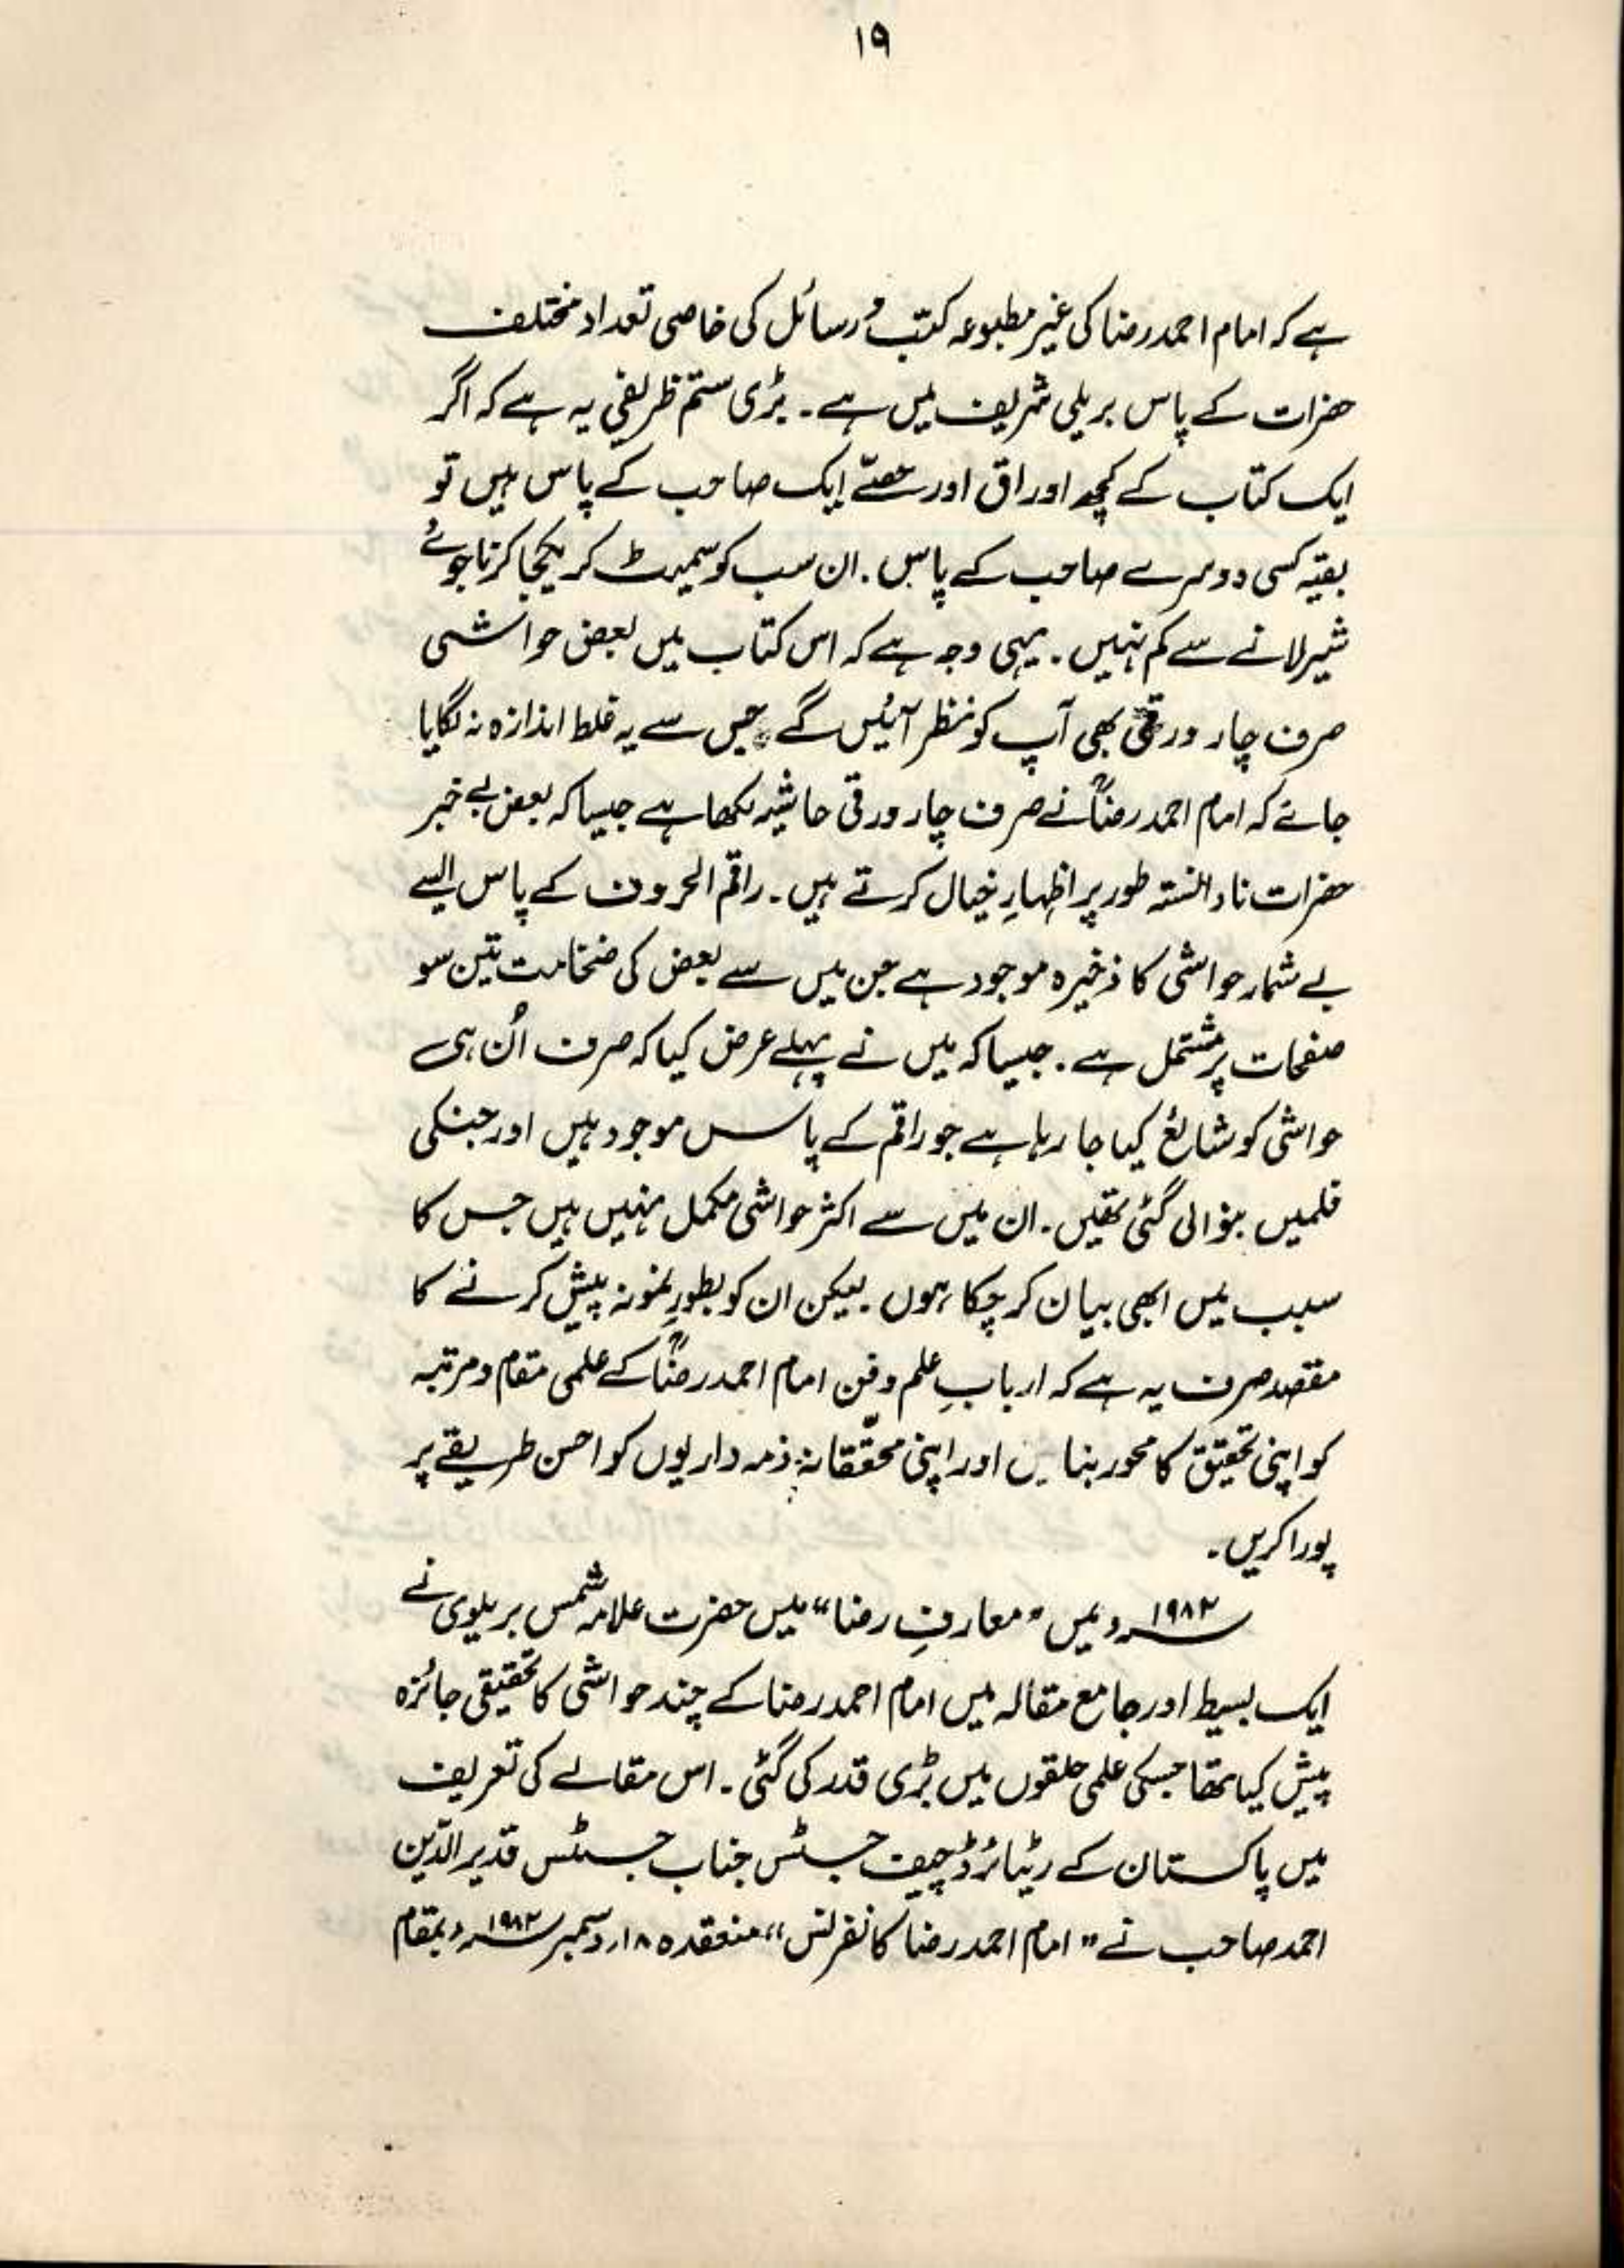 ۱۹
ہے کہ امام احمد رضا کی غیر مطبوعہ کتب و رسائل کی خاصی تعداد مختلف
حضرات کے پاس بریلی شریف میں ہے۔ بڑی ستم ظریفی یہ ہے کہ اگر
ایک کتاب کے کچھ اوراق اور حصّے ایک صاحب کے پاس ہیں تو
بقیہ کسی دوسرے صاحب کے پاس۔ ان سب کو سمیٹ کر یکجا کرنا جوئے
شیر لانے سے کم نہیں۔ یہی وجہ ہے کہ اس کتاب میں بعض حواشی
صرف چار ورقی بھی آپ کو نظر آئیں گے جس سے یہ غلط اندازہ نہ لگایا
جائے کہ امام احمد رضاؒ نے صرف چار ورقی حاشیہ لکھا ہے جیسا کہ بعض بے خبر
حضرات نادانستہ طور پر اظہارِ خیال کرتے ہیں۔ راقم الحروف کے پاس ایسے
بے شمار حواشی کا ذخیرہ موجود ہے جن میں سے بعض کی ضخامت تین سو
صفحات پر مشتمل ہے۔ جیسا کہ میں نے پہلے عرض کیا کہ صرف اُن ہی
حواشی کو شائع کیا جا رہا ہے جو راقم کے پاس موجود ہیں اور جنکی
فلمیں بنوالی گئی تھیں۔ ان میں سے اکثر حواشی مکمل نہیں ہیں جس کا
سبب میں ابھی بیان کر چکا ہوں۔ لیکن ان کو بطورِ نمونہ پیش کرنے کا
مقصد صرف یہ ہے کہ اربابِ علم و فن امام احمد رضاؒ کے علمی مقام و مرتبہ
کو اپنی تحقیق کا محور بنائیں اور اپنی محقّقانہ ذمہ داریوں کو احسن طریقے پر
پورا کریں۔
۱۹۸۲ء میں "معارفِ رضا" میں حضرت علامہ شمس بریلوی نے
ایک بسیط اور جامع مقالہ میں امام احمد رضا کے چند حواشی کا تحقیقی جائزہ
پیش کیا تھا جسکی علمی حلقوں میں بڑی قدر کی گئی۔ اس مقالے کی تعریف
میں پاکستان کے ریٹائرڈ چیف جسٹس جناب جسٹس قدیر الدّین
احمد صاحب نے "امام احمد رضا کانفرنس" منعقدہ ۱۸؍ دسمبر ۱۹۸۲ء بمقام